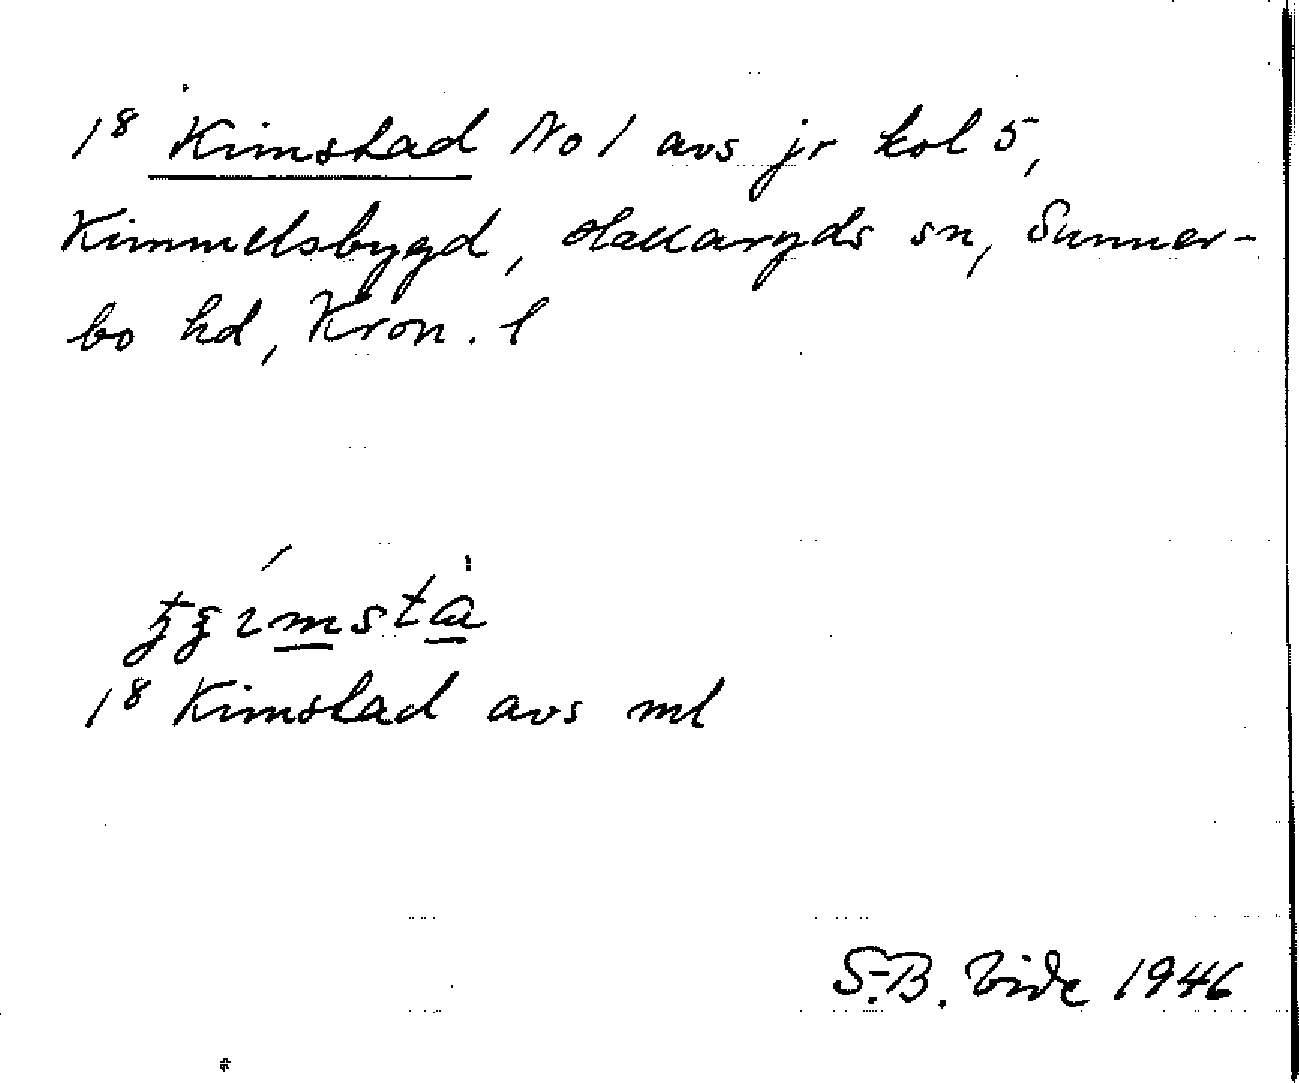 1⁸ Kimstad No 1 avs jr kol 5,
Kimmelsbygd, Hallaryds sn, Sunner-
bo hd, Kron. l
1⁸ Kimstad avs ml
S.-B. Vide 1946